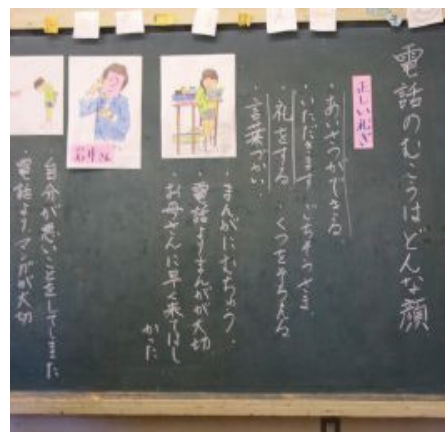 電話のむこうはどんな顔
正しい礼ぎ
・あいさつができる
・いただきます ごちそうさま
・礼をする ・くつをそろえる
・言葉づかい
・まんがにむちゅう
・電話よりまんがが大切
・お母さんに早く来てほし
かった
石井さん
自分が悪いことをしてしまった
・電話よりマンガが大切